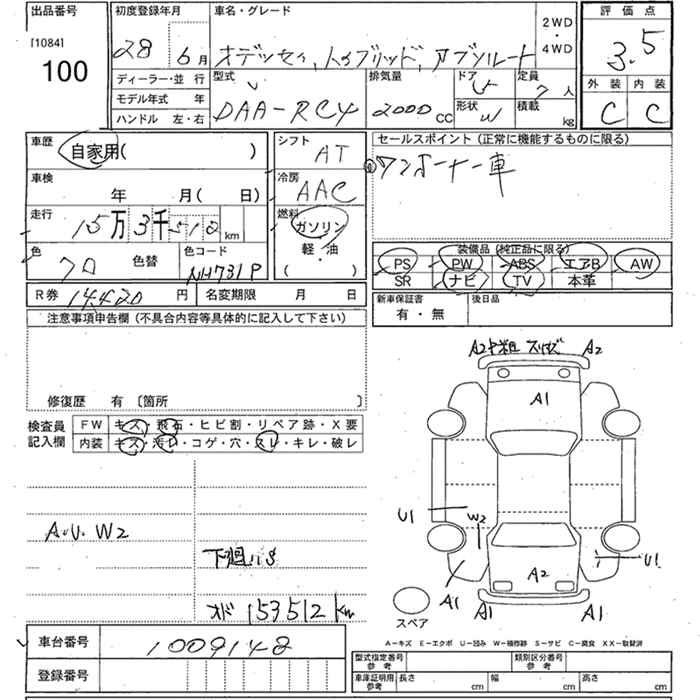 出品番号
[1084]
100
初度登録年月
28 6月
車名・グレード
オデッセイ、ハイブリッド、アブソルート
2WD
・
4WD
評価点
3.5
外装 内装
C C
ディーラー・並行
モデル年式 年
ハンドル 左・右
型式
DAA-RC4
排気量
2000cc
ドア
5
形状
W
定員
7人
積載
kg
車歴
自家用( )
車検
年 月( 日)
走行
15万3千512km
色
クロ
色替
色コード
NH731P
シフト
AT
冷房
AAC
燃料
ガソリン
軽・油
( )
セールスポイント(正常に機能するものに限る)
ワンオーナー車
装備品(純正品に限る)
PS PW ABS エアB AW
SR ナビ TV 本革
R券 14,420円 名変期限 月 日
新車保証書
有・無
後日品
注意事項申告欄(不具合内容等具体的に記入して下さい)
修復歴 有〔箇所 〕
検査員
記入欄
FW キズ・飛石・ヒビ割・リペア跡・X要
内装 キズ・汚レ・コゲ・穴・スレ・キレ・破レ
A・U・W2
下廻りS
オド 153512km
A2 A2
A1
U1
W2
A2
U1
A1 A1 A1
スペア
A-キズ E-エクボ U-凹み W-補修跡 S-サビ C-腐食 XX-取替済
車台番号
1009148
登録番号
型式指定番号
参考
類別区分番号
参考
車庫証明用
参考
長さ cm 幅 cm 高さ cm